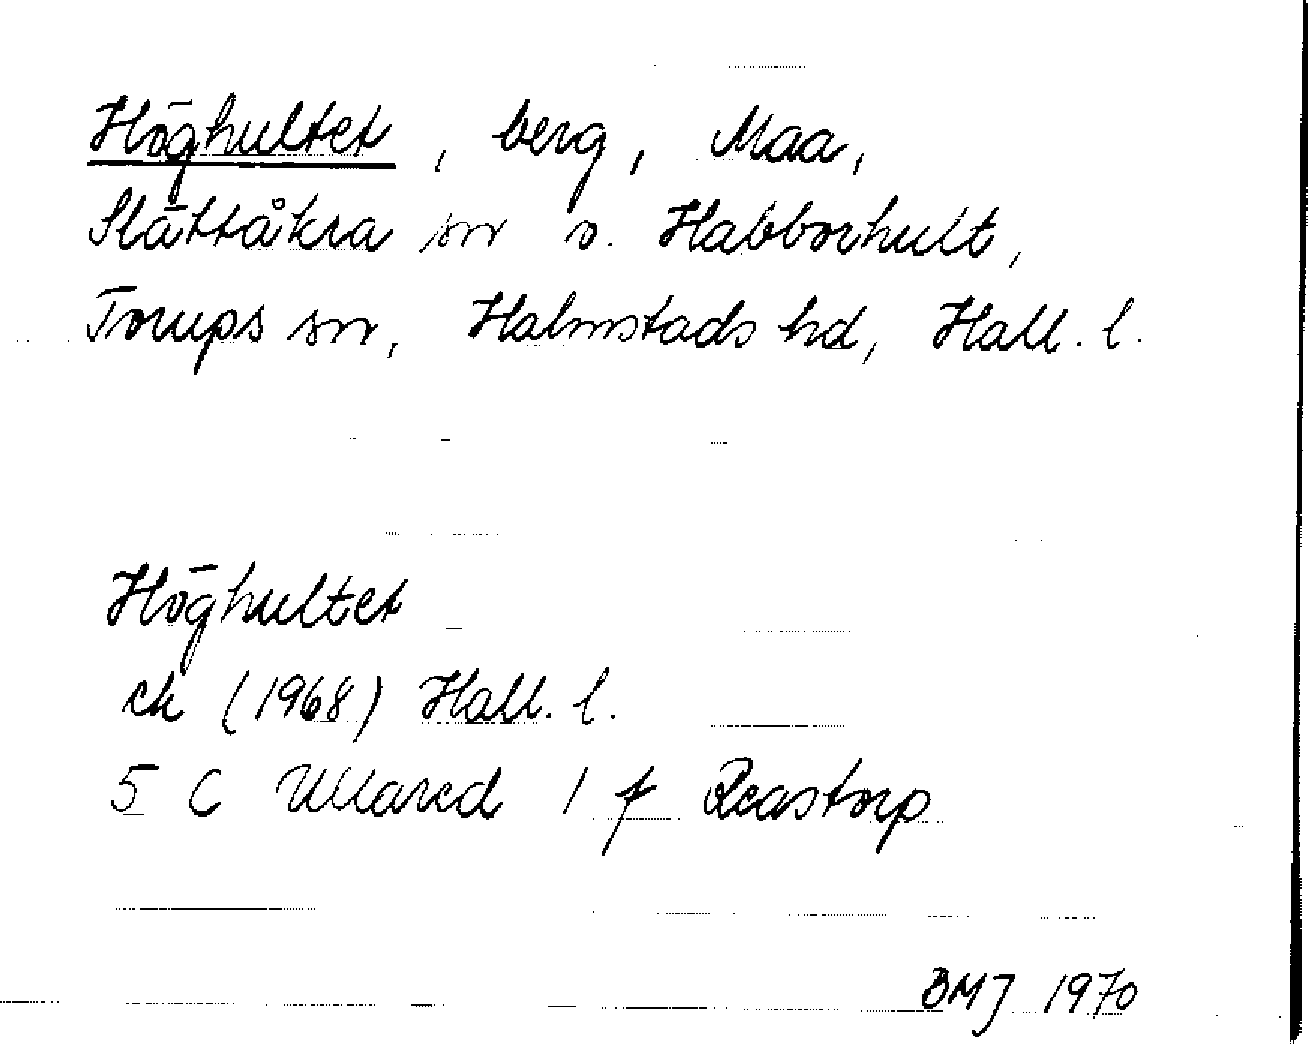 Höghultet, berg, Maa,
Slättåkra sn o. Habborhult,
Torups sn, Halmstads hd, Hall. l.
Höghultet
ek (1968) Hall. l.
5 C Ullared 1 f Reastorp
BMJ 1970